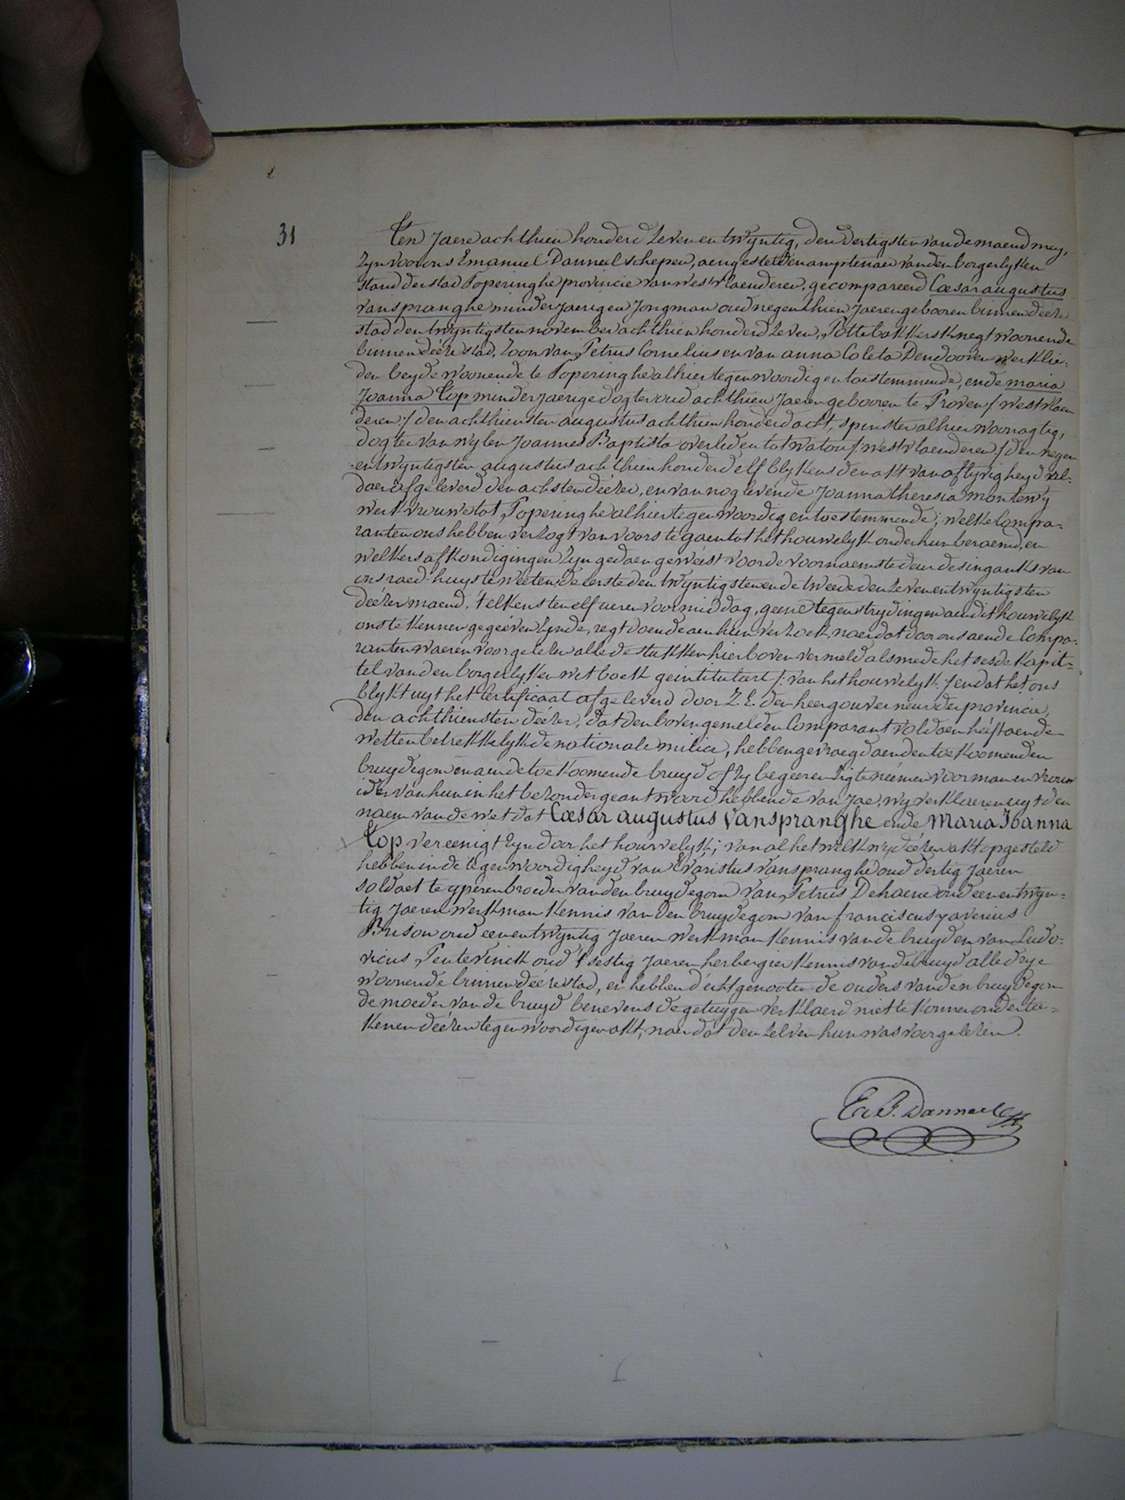 31
Ten Jaere achthien honderd zeven en twyntig, den dertigsten van de maend mey,
zyn voor ons Emanuel Danneel schepen, aengestelden amptenaer van den borgerlyken
stand der stad Poperinghe provincie van westvlaenderen, gecompareerd Cæsar augustus
vanspranghe minderjaerigen Jongman oud negenthien Jaeren gebooren binnen deeze
stad den twyntigsten november achthien honderd zeven, Pottebakkersknegt woonende
binnen deéze stad, zoon van Petrus Cornelius en van anna Coleta Dendooven werklie-
den beyde woonende te Poperinghe alhier tegenwoordig en toestemmende, ende maria
Joanna Top minderjaerige dogter oud achthien Jaeren gebooren te Proven / westvlaen
deren / den achthiensten augustus achthien honderd acht, spinster alhier woonagtig,
dogter van wylen Joannes Baptista overleden tot watou / westvlaenderen / den negen
entwyntigsten augustus achthien honderd elf blykens den akt van aflyvigheyd al-
daer afgeleverd den achsten déézer, en van nog levende Joanna theresia montewy
werkvrouwe tot Poperinghe alhier tegenwoordig en toestemmende; welke Compa-
ranten ons hebben verzogt van voors te gaen tot het houwelyk onder hun beraemd, en
welkers afkondigingen zyn gedaen gewéést voor de voornaemste deur des ingangs van
ons raed-huys te weeten de eerste den twyntigsten ende tweede den zeven entwyntigsten
deézer maend, telkens ten elf uren voormiddag, geene tegenstrydingen aen dit houwelyk
ons te kennen gegééven zynde, regt doende aen hun verzoek, naer dat door ons aen de Compa-
ranten waeren voorgelezen alle de stukken hier boven vermeld alsmede het sesde kapit-
tel van den borgerlyken wetboek geintituleert / van het houwelyk / en dat het ons
blykt uyt het Certificaat afgeleverd door Z.E. den heer gouverneur der provincie,
den achthiensten déézer, dat den bovengemelden Comparant voldaen heéft aen de
wetten betrekkelyk de nationale milicie, hebben gevraegd aen den toekoomenden
bruydegom en aen de toekoomende bruyd of zy begeeren zig te neémen voor man en vrouw
ider van hun in het bezonder geantwoord hebbende van Jae, wy verklaeren uyt den
naem van de wet dat Cæsar augustus Vanspranghe ende Maria Joanna
Top vereenigt zyn door het houwelyk; van al het welk wy deézen akt opgesteld
hebben in de tegenwoordigheyd van Evaristus vanspranghe oud dertig Jaeren
soldaet te yperen broeder van den bruydegom van Petrus Dehaene oud een en twyn-
tig Jaeren werkman kennis van den bruydegom van franciscus xaverius
Buson oud eenentwyntig Jaeren werkman kennis van de bruyd en van Ludo-
vicus Peutevinck oud sestig Jaeren herbergier kennis van de bruyd alle drye
woonende binnen deéze stad, en hebben d'echtgenooten de ouders van den bruydegom
de moeder van de bruyd benevens de getuygen verklaerd niet te konnen onderteé-
kenen deézen tegenwoordigen akt, naer dat den zelven hun was voorgelezen.
Em. Danneel